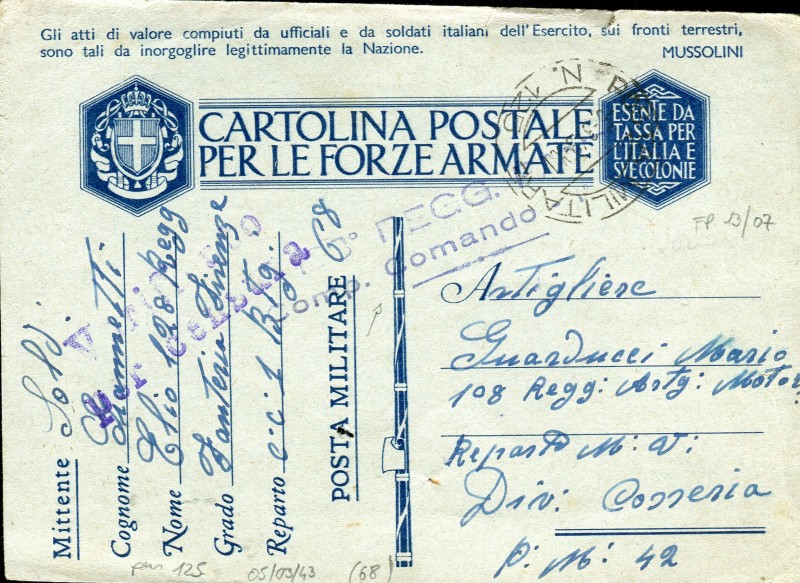 Gli atti di valore compiuti da ufficiali e da soldati italiani dell'Esercito, sui fronti terrestri,
sono tali da inorgoglire legittimamente la Nazione. MUSSOLINI
CARTOLINA POSTALE
PER LE FORZE ARMATE
ESENTE DA
TASSA PER
L'ITALIA E
SUE COLONIE
POSTA MILITARE N. 
FP 13/07
REGG.
Comp. Comando
Verificato
Per censura
Mittente Sold.
Cognome
Nome Elio 128 Regg
Grado Fanteria Firenze
Reparto c. c. 1 Btg.
POSTA MILITARE 68
Artigliere
Guarducci Mario
108 Regg: Artg: Motor
Reparto M: V:
Div: Cosseria
P: M: 42
pm 125
05/03/43
(68)